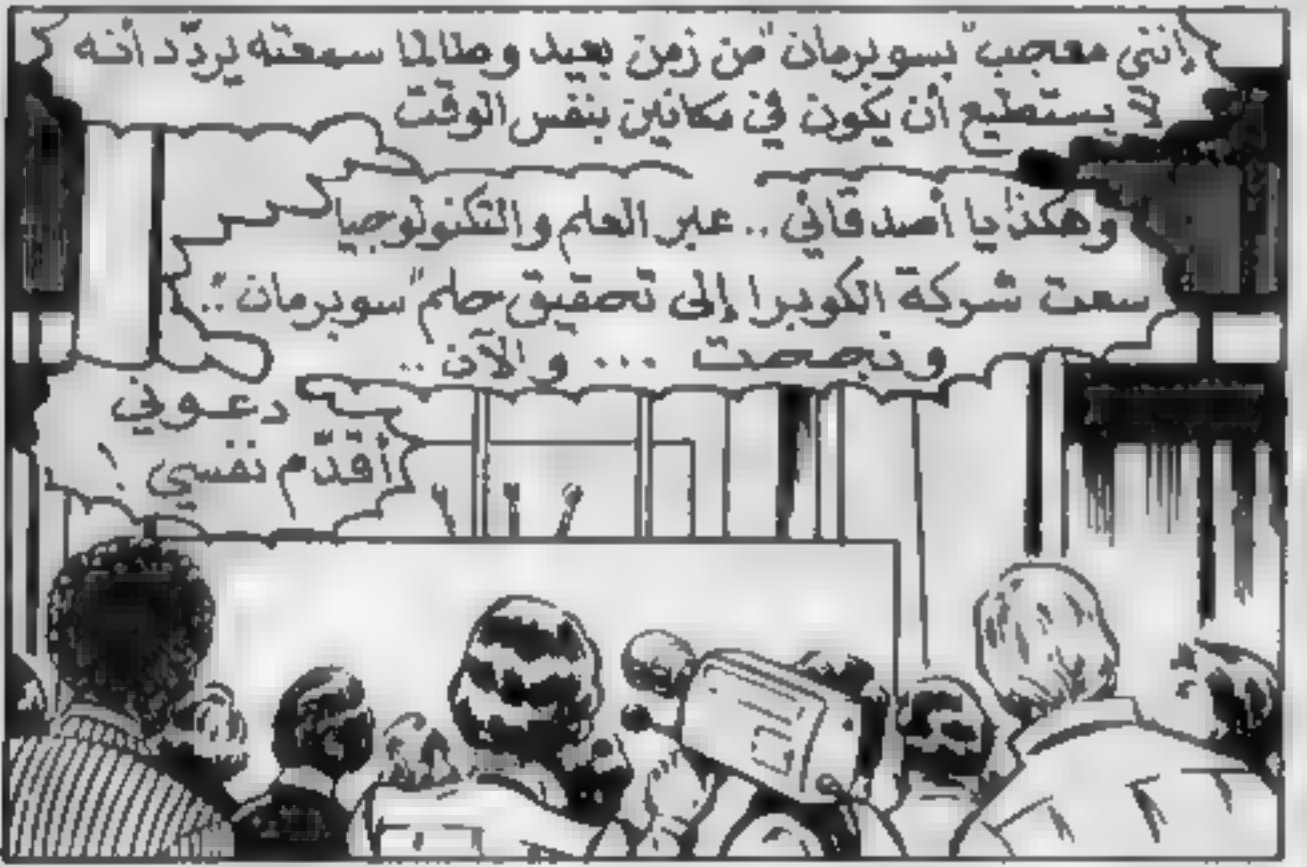 إنني معجب "بسوبرمان" من زمن بعيد وطالما سمعته يردّد أنه
لا يستطيع أن يكون في مكانين بنفس الوقت
وهكذا يا أصدقائي .. عبر العلم والتكنولوجيا
سعت شركة الكوبرا إلى تحقيق حلم "سوبرمان" ..
ونجحت ... والآن ..
دعوني
أقدّم نفسي !